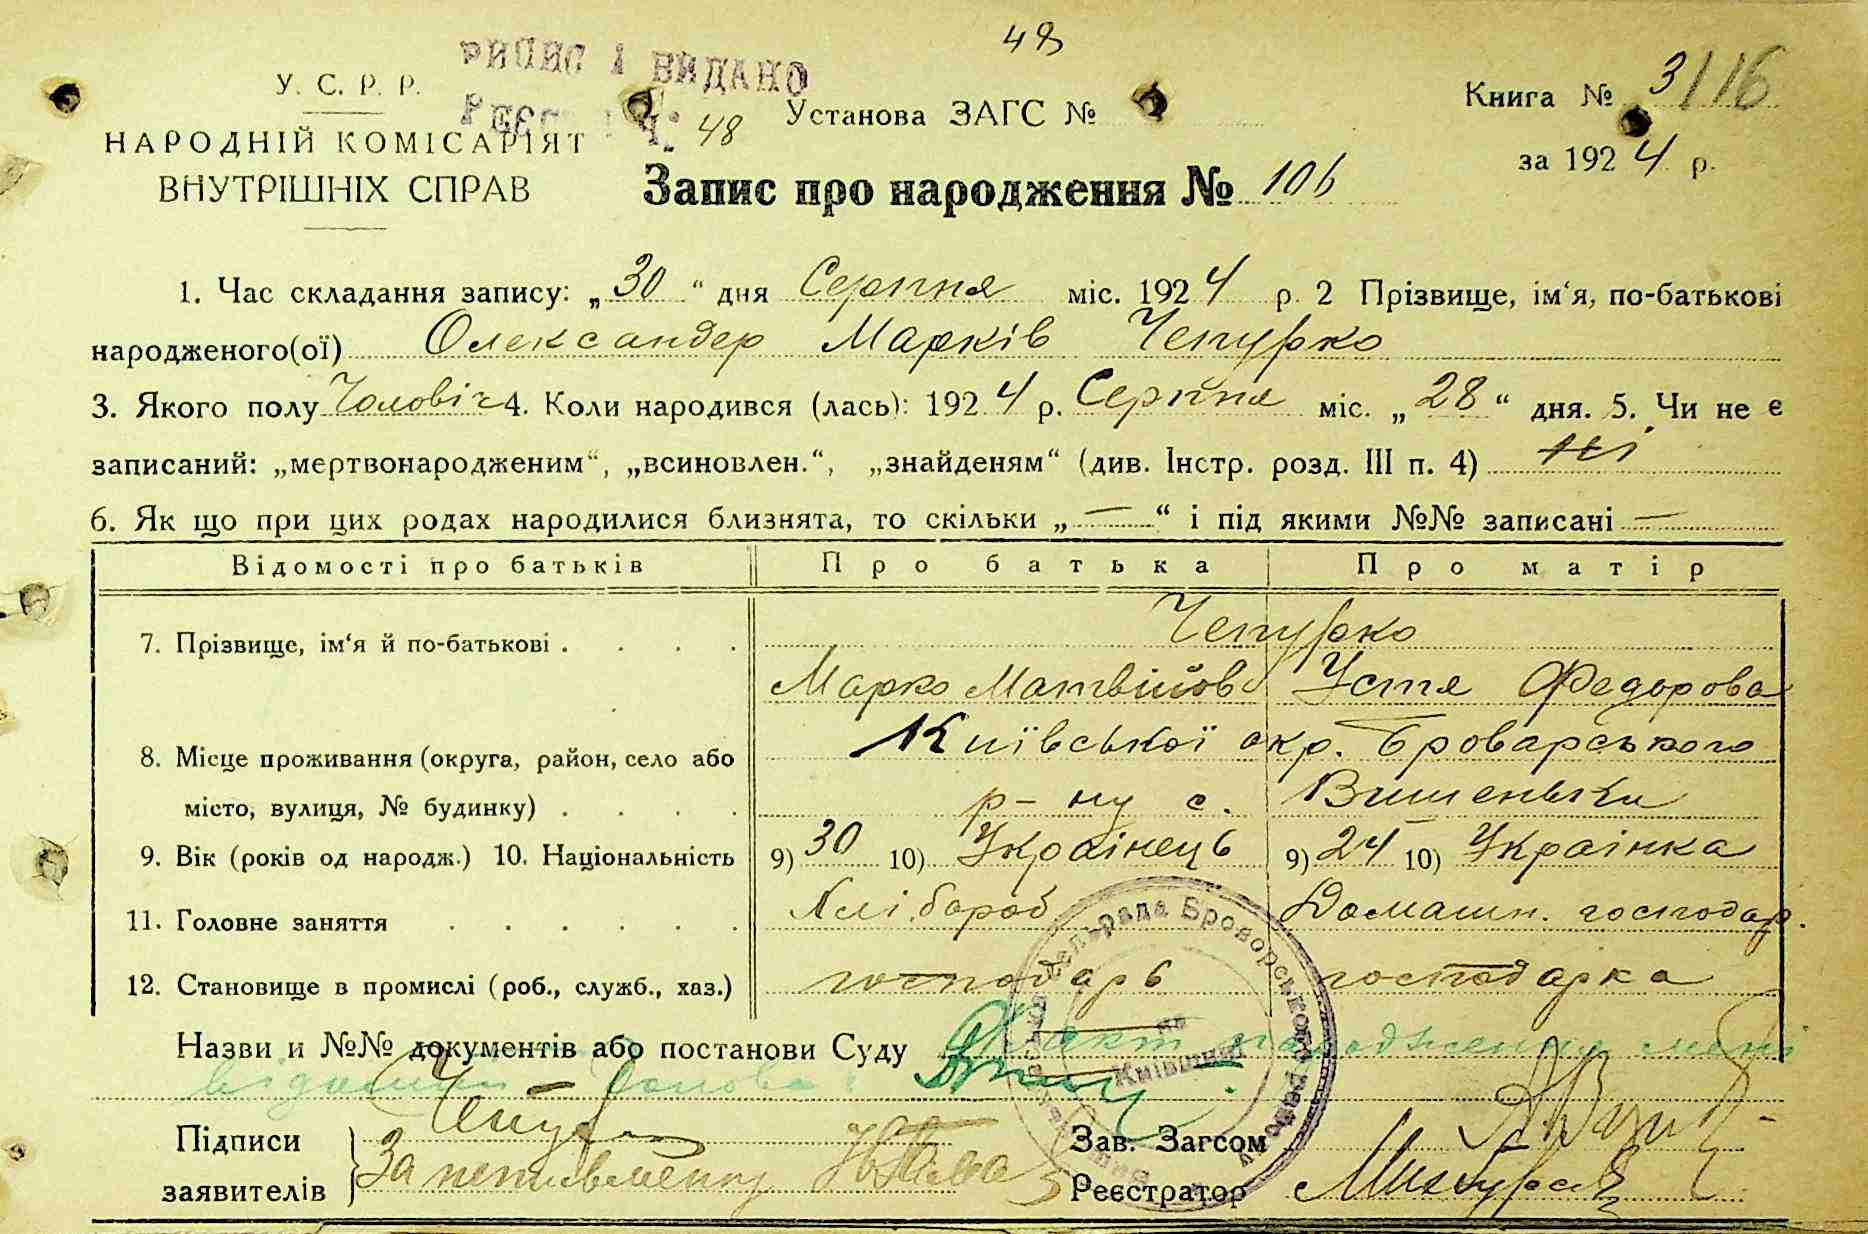 48
ВИПИС І ВИДАНО
У. С. Р. Р.
Книга № 3/116
РЕЄСТ Ч. 48
Установа ЗАГС №
НАРОДНІЙ КОМІСАРІЯТ
за 1924 р.
ВНУТРІШНІХ СПРАВ
Запис про народження № 106
1. Час складання запису: „30“ дня Серпня міс. 1924 р. 2 Прізвище, ім‘я, по-батькові
народженого(ої) Олександер Марків Чепурко
3. Якого полу Чоловіч 4. Коли народився (лась): 1924 р. Серпня міс. „28“ дня. 5. Чи не є
записаний: „мертвонародженим“, „всиновлен.“, „знайденям“ (див. Інстр. розд. III п. 4) ні
6. Як що при цих родах народилися близнята, то скільки „—“ і під якими №№ записані —
Відомості про батьків Про батька Про матір
7. Прізвище, ім‘я й по-батькові . . . . Чепурко
Марко Матвійов Устя Федорова
8. Місце проживання (округа, район, село або Київської окр. Броварського
місто, вулиця, № будинку) . . . . р-ну с. Вишеньки
9. Вік (років од народж.) 10. Національність 9) 30 10) Українець 9) 24 10) Українка
11. Головне заняття . . . . . . Хлібороб Домашн. господар.
12. Становище в промислі (роб., служб., хаз.) господарь господарка
Назви и №№ документів або постанови Суду Факт народження мені
відомий Голова
Підписи Чепур Зав. Загсом
заявителів За неписьменну Реєстратор
сільрада Броворського району
на Київщині